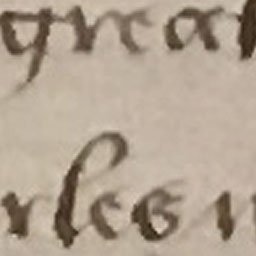 great
rles